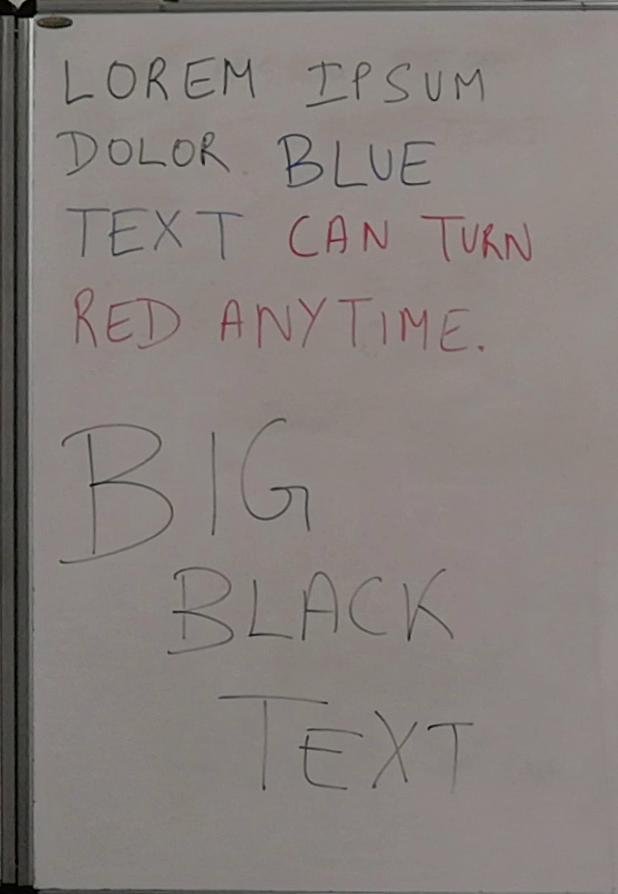 LOREM IPSUM
DOLOR BLUE
TEXT CAN TURN
RED ANYTIME.
BIG
BLACK
TEXT